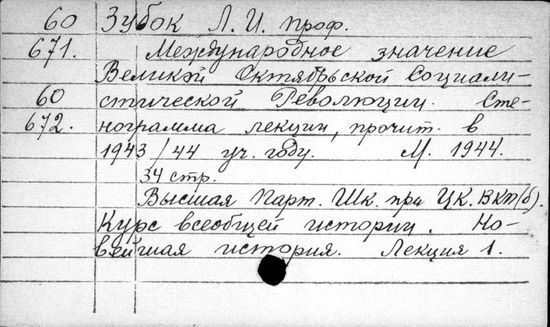 60 Зубок Л. И. проф.
671. Международное значение
Великой Октябрьской Социали-
60 стической Революции. Сте-
672. нограмма лекции, прочит. в
1943/44 уч. году. М. 1944.
34 стр.
Высшая Парт. Шк. при ЦК. ВКП(б).
Курс всеобщей истории. Но-
вейшая история. Лекция 1.